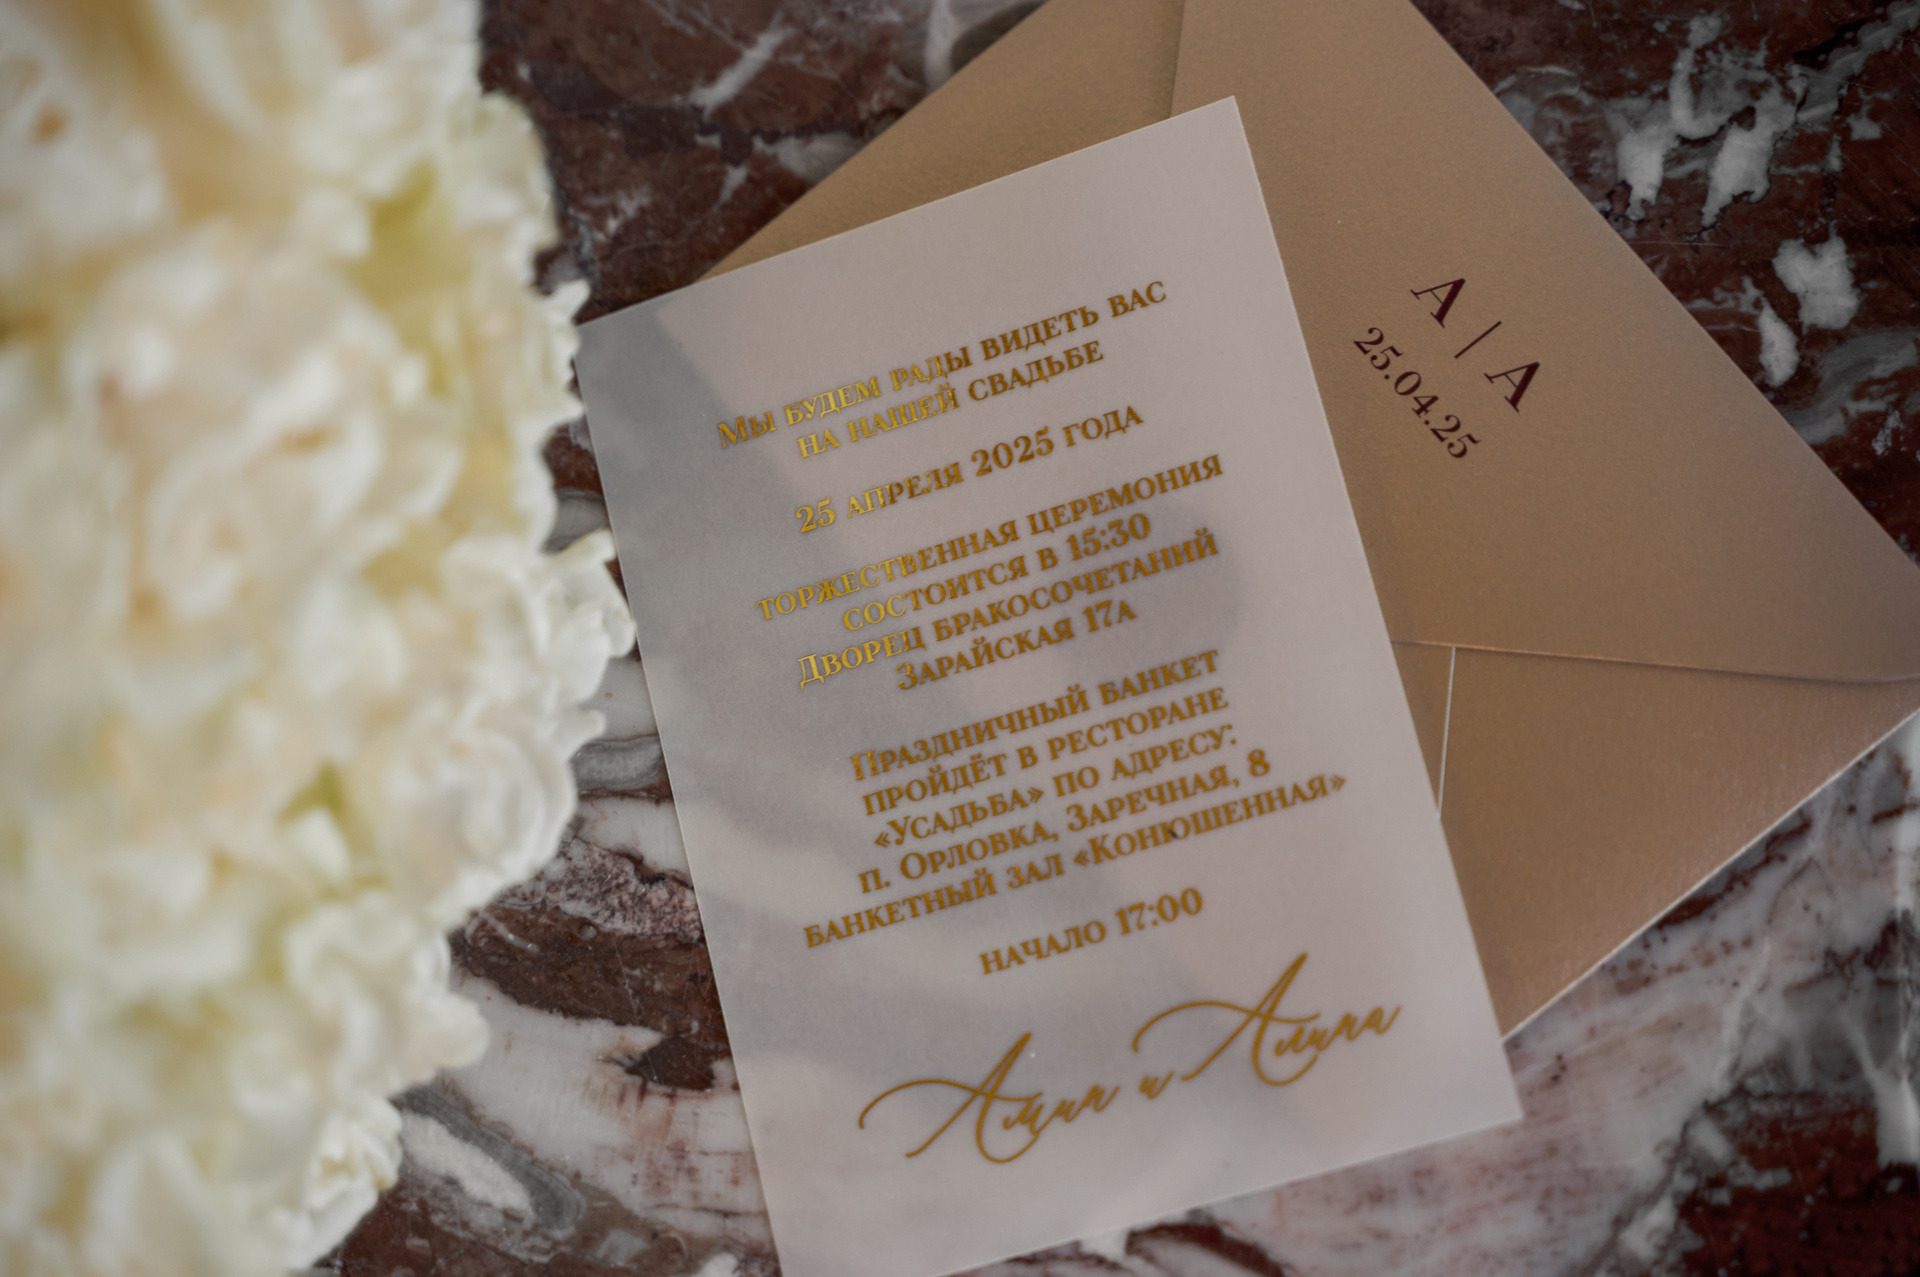 Мы будем рады видеть вас
на нашей свадьбе
25 апреля 2025 года
торжественная церемония
состоится в 15:30
Дворец бракосочетаний
Зарайская 17а
Праздничный банкет
пройдёт в ресторане
«Усадьба» по адресу:
п. Орловка, Заречная, 8
банкетный зал «Конюшенная»
начало 17:00
Амин и Алина
A | A
25.04.25